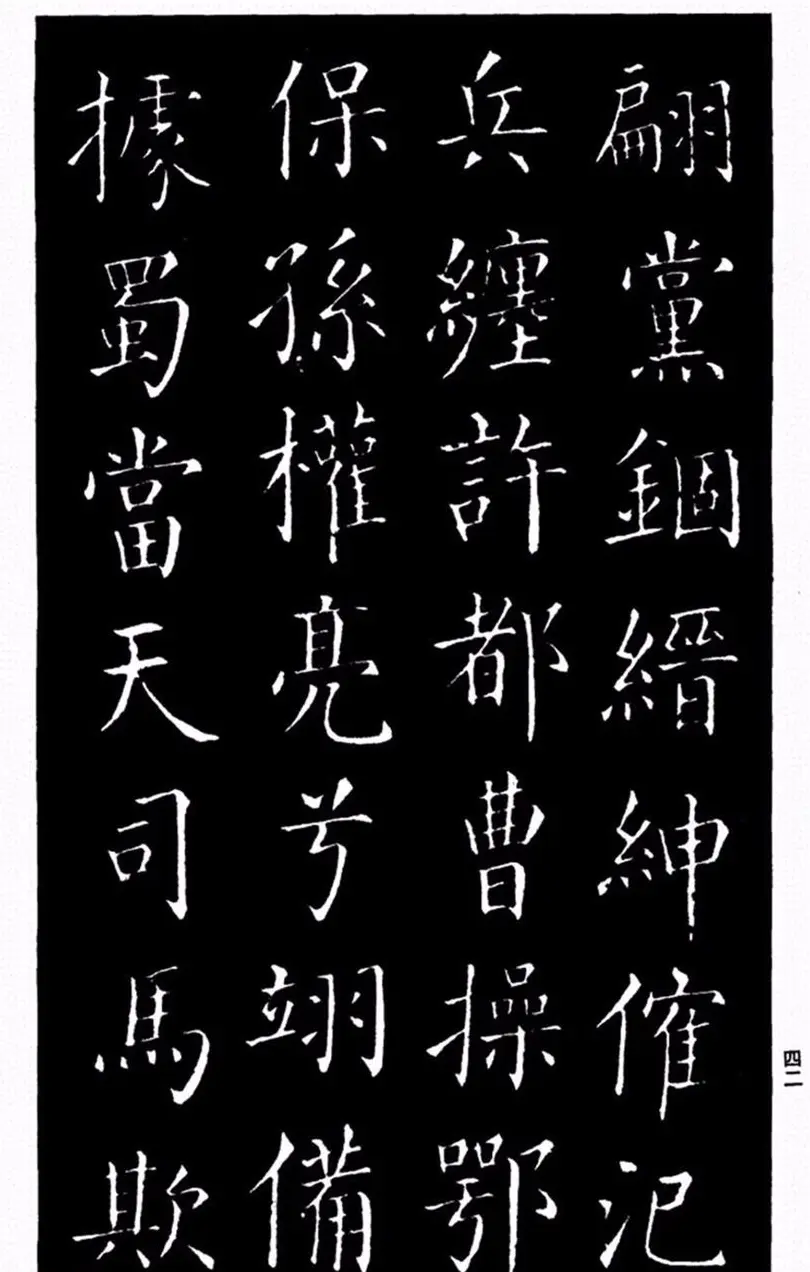 翩黨錮縉紳傕汜
兵纏許都曹操鄂
保孫權亮兮翊備
據蜀當天司馬欺
四二